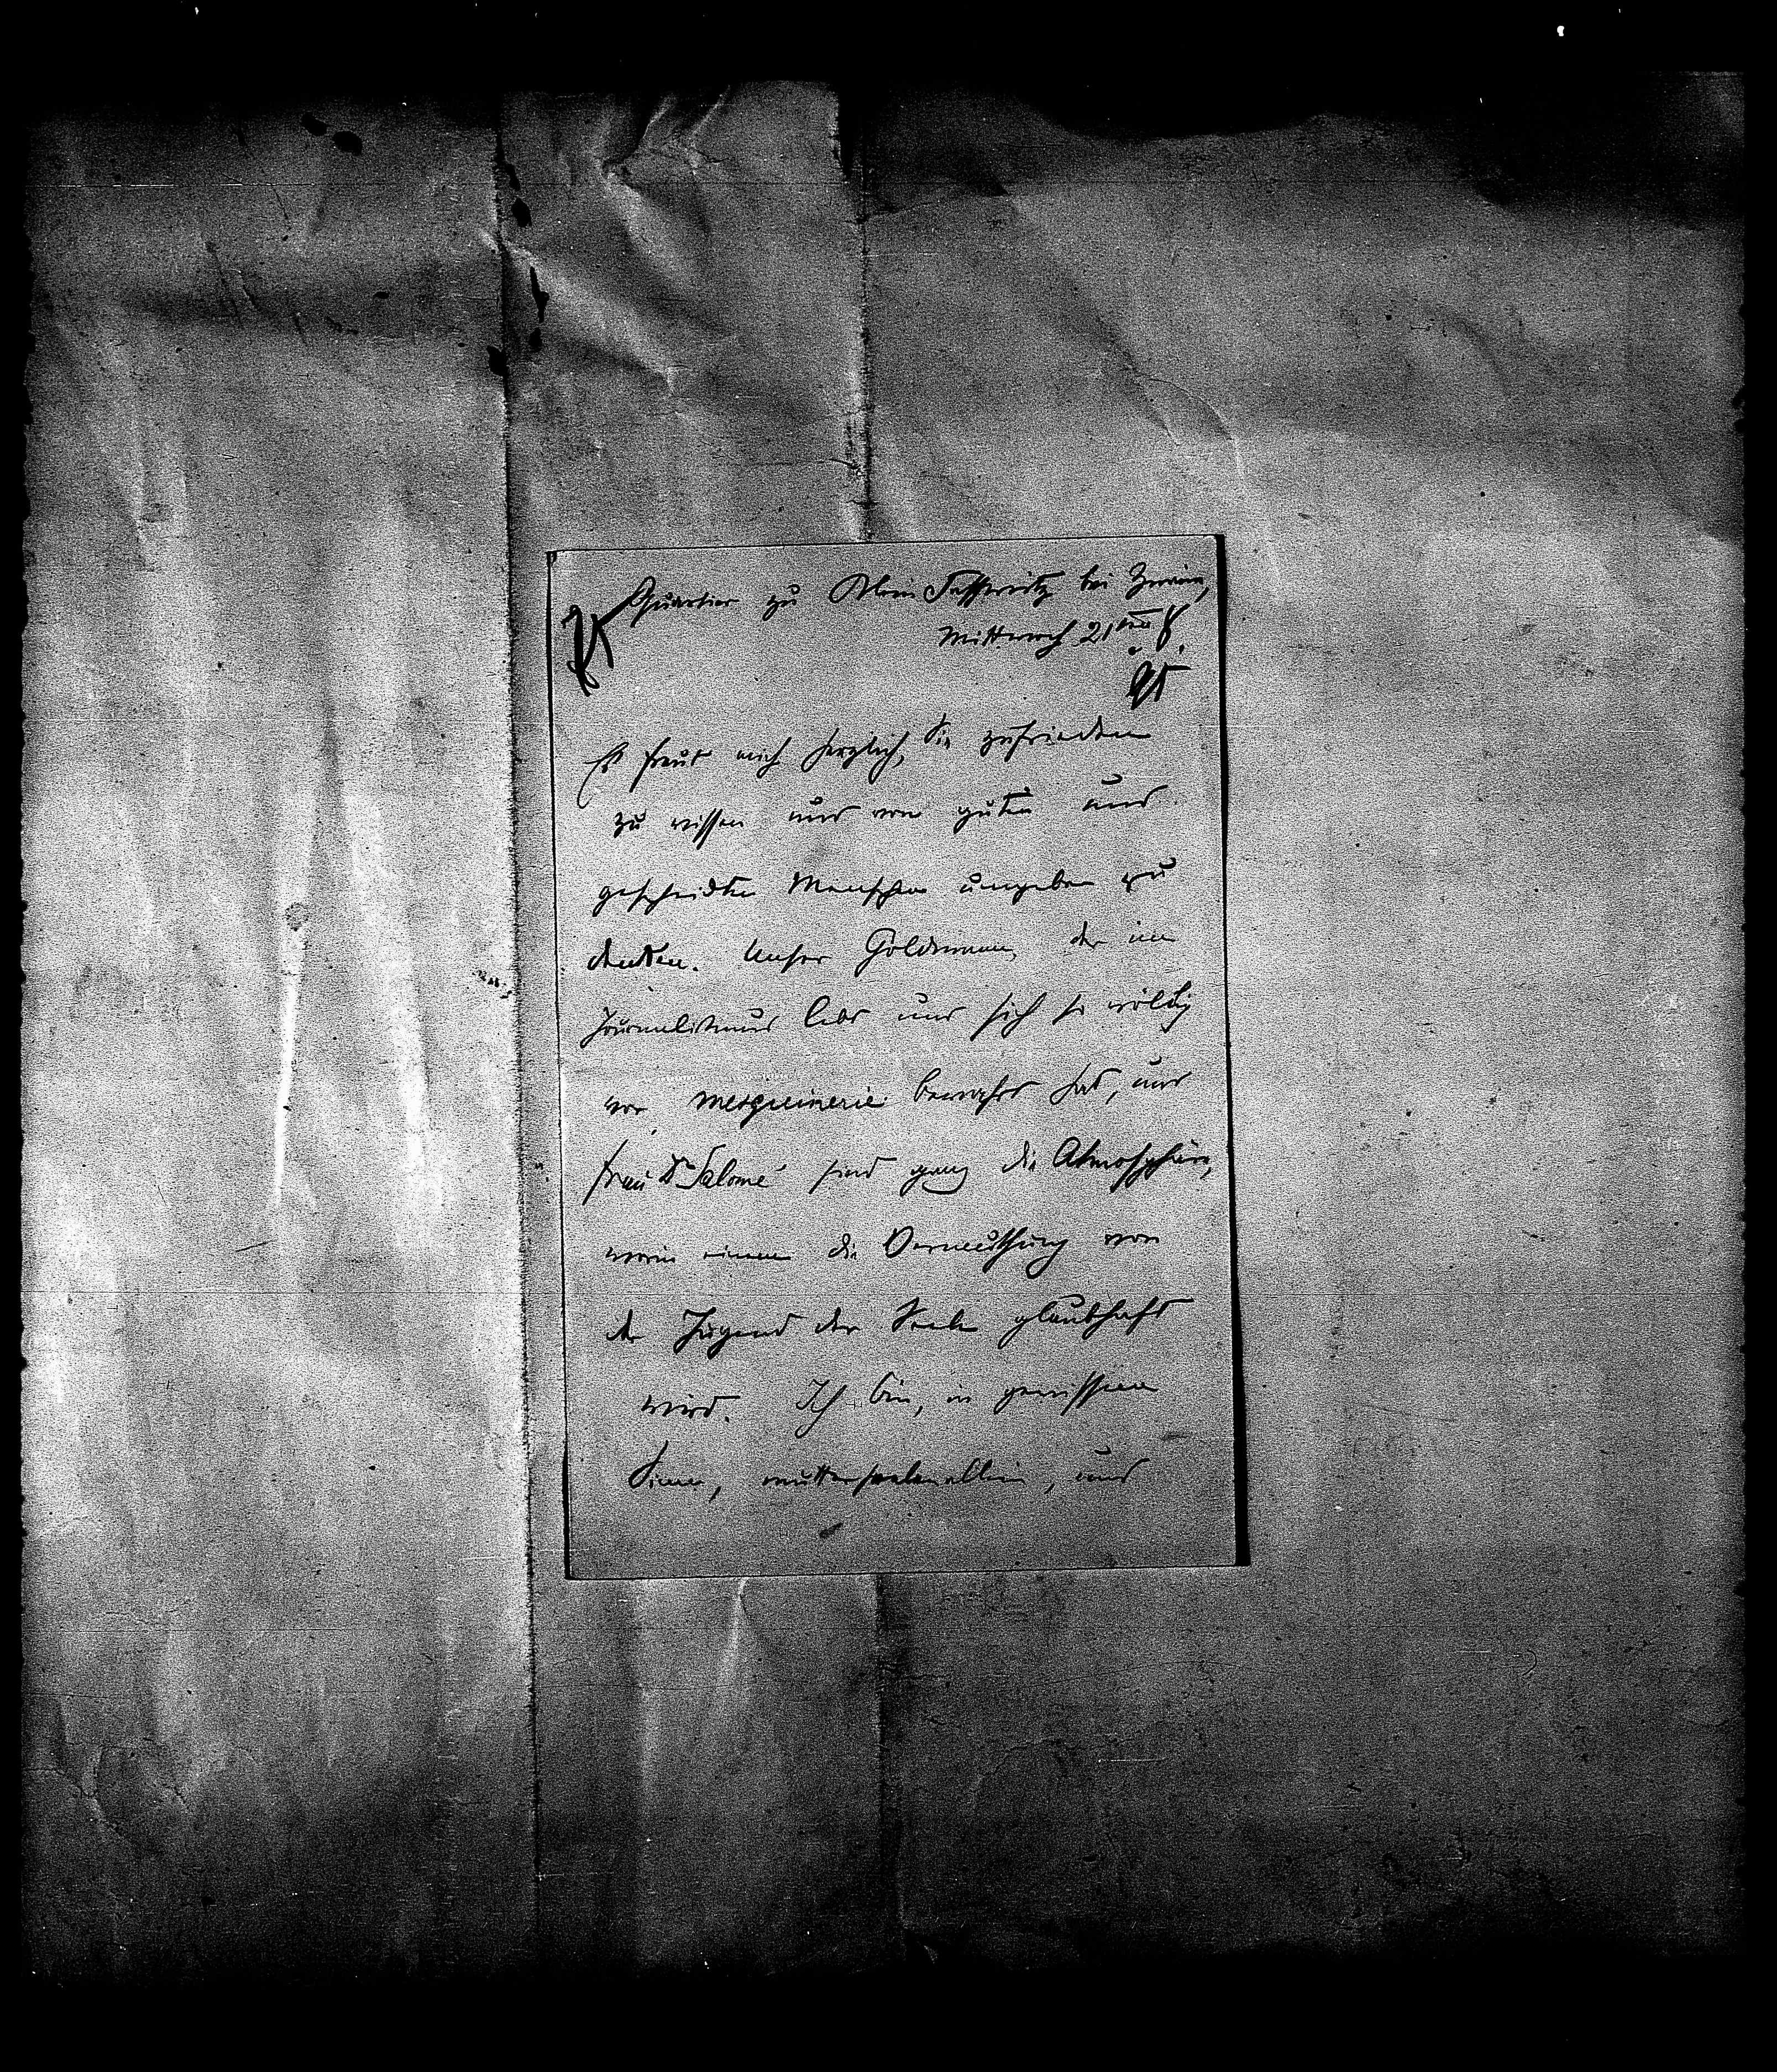 Quartier zu Klein Tesswitz bei Znaim,
Mittwoch 21ten 8.
95
Es freut mich herzlich, Sie zufrieden
zu wissen und von guten und
gescheidten Menschen umgeben zu
denken. Unser Goldmann, der im
Journalismus lebt und sich so völlig
vor mesquinerie bewahrt hat, und
Frau Dr Salomé sind ganz die Atmosphäre,
worin einem die Vermuthung von
der Jugend der Seele glaubhaft
wird. Ich bin, in gewissem
Sinne, mutterseelenallein, und